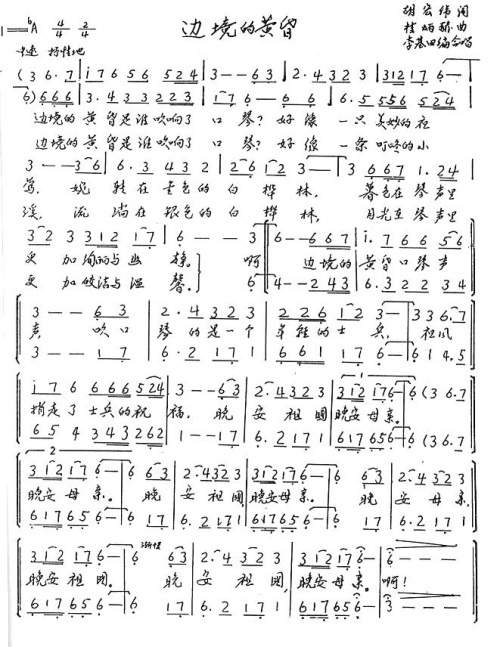 边境的黄昏
胡宏伟词
1=♭A 4/4 2/4
桂炳赫曲
中速
李基四编合唱
(3 6· 7 | i 7 6 5 6 5 2 4 | 3 - - 6 3 | 2 · 4 3 2 3 | 3 1 2 1 7 6 -
边境的黄昏是谁吹响了口琴?好像一只美妙的夜
边境的黄昏是谁吹响了口琴?好像一条叮咚的小
3 - - 3 6 | 6 · 3 4 3 2 | 2 6 1 2 3 - | 3 6 6 7 1 · 2 4
莺,婉转在青色的白桦林,暮色在琴声里
溪,流淌在银色的白桦林,月光在琴声里
3 2 3 3 1 2 1 7 | 6 - - 3 | 6 - - 6 6 7 | i · 7 6 6 5 6
更加 啊 边境的黄昏口琴声
更加皎洁与温馨。 6 4 - - 2 4 3 | 6 · 3 2 2 3 4
3 - - 6 3 | 2 · 4 3 2 3 | 2 2 2 6 1 2 3 - | 3 3 6 · 7
声,吹口琴的是一个年轻的士兵,
3 - - 1 7 | 6 · 2 1 7 1 | 6 6 1 1 7 6 - | 6 1 4 · 5
i 7 6 6 6 6 5 2 4 | 3 - - 6 3 | 2 · 4 3 2 3 | 3 1 2 1 7 6 - | 6 (3 6 · 7
捎走了士兵的祝福,晚安祖国晚安母亲。
6 5 4 3 4 3 2 6 2 | 1 - - 1 7 | 6 · 2 1 7 1 | 6 1 7 6 5 6 - | 6 (3 6 · 7
2
3 1 2 1 7 6 - | 6 6 3 | 2 · 4 3 2 3 | 3 1 2 1 7 6 - | 6 6 3 | 2 · 4 3 2 3
晚安母亲。晚安祖国,晚安母亲。晚安母亲,
6 1 7 6 5 6 - | 6 1 7 | 6 · 2 1 7 1 | 6 1 7 6 5 6 - | 6 1 7 | 6 · 2 1 7 1
渐慢
3 1 2 1 7 6 - | 6 6 3 | 2 · 4 3 2 3 | 3 1 2 1 7 6 - | 3 - - -
晚安祖国。晚安祖国,晚安母亲。啊!
6 1 7 6 5 6 - | 6 1 7 | 6 · 2 1 7 1 | 6 1 7 6 5 6 - | 6 - - -